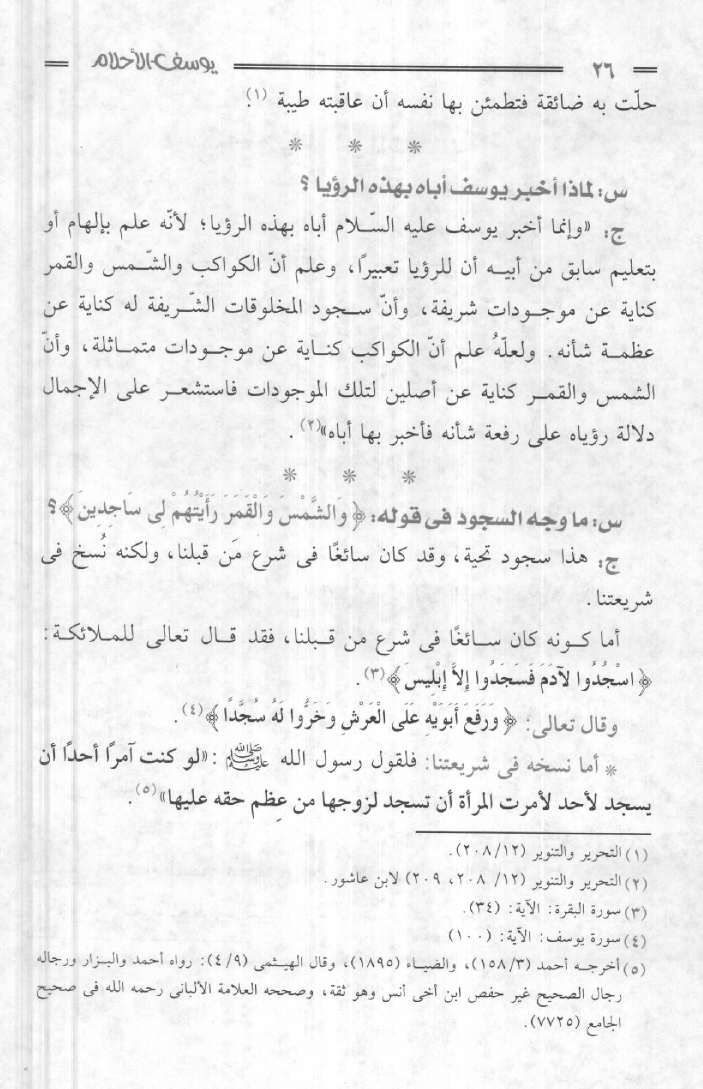 ٢٦ يوسف الأحلام
حلّت به ضائقة فتطمئن بها نفسه أن عاقبته طيبة (١).
* * *
س: لماذا أخبر يوسف أباه بهذه الرؤيا ؟
ج: «وإنما أخبر يوسف عليه السّلام أباه بهذه الرؤيا؛ لأنّه علم بإلهام أو
بتعليم سابق من أبيه أن للرؤيا تعبيرًا، وعلم أنّ الكواكب والشّمس والقمر
كناية عن موجودات شريفة، وأنّ سجود المخلوقات الشّريفة له كناية عن
عظمة شأنه. ولعلّهُ علم أنّ الكواكب كناية عن موجودات متماثلة، وأنّ
الشمس والقمر كناية عن أصلين لتلك الموجودات فاستشعر على الإجمال
دلالة رؤياه على رفعة شأنه فأخبر بها أباه»(٢).
* * *
س: ما وجه السجود فى قوله: ﴿ وَالشَّمْسَ وَالْقَمَرَ رَأَيْتُهُمْ لِى سَاجِدِينَ ﴾؟
ج: هذا سجود تحية، وقد كان سائغًا فى شرع مَن قبلنا، ولكنه نُسخ فى
شريعتنا.
أما كونه كان سائغًا فى شرع من قبلنا، فقد قال تعالى للملائكة:
﴿ اسْجُدُوا لآدَمَ فَسَجَدُوا إِلاَّ إِبْلِيسَ ﴾(٣).
وقال تعالى: ﴿ وَرَفَعَ أَبَوَيْهِ عَلَى الْعَرْشِ وَخَرُّوا لَهُ سُجَّدًا ﴾(٤).
* أما نسخه فى شريعتنا: فلقول رسول الله ﷺ: «لو كنت آمرًا أحدًا أن
يسجد لأحد لأمرت المرأة أن تسجد لزوجها من عِظم حقه عليها»(٥).
(١) التحرير والتنوير (٢٠٨/١٢).
(٢) التحرير والتنوير (١٢/ ٢٠٨، ٢٠٩) لابن عاشور.
(٣) سورة البقرة: الآية: (٣٤).
(٤) سورة يوسف: الآية: (١٠٠)
(٥) أخرجه أحمد (١٥٨/٣)، والضياء (١٨٩٥)، وقال الهيثمى (٤/٩): رواه أحمد والبزار ورجاله
رجال الصحيح غير حفص ابن أخى أنس وهو ثقة، وصححه العلامة الألبانى رحمه الله فى صحيح
الجامع (٧٧٢٥).